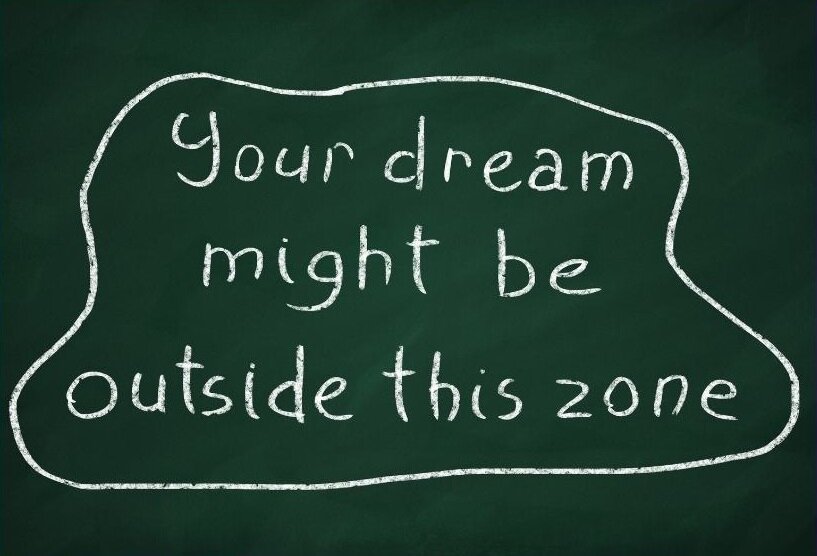 Your dream
might be
outside this zone